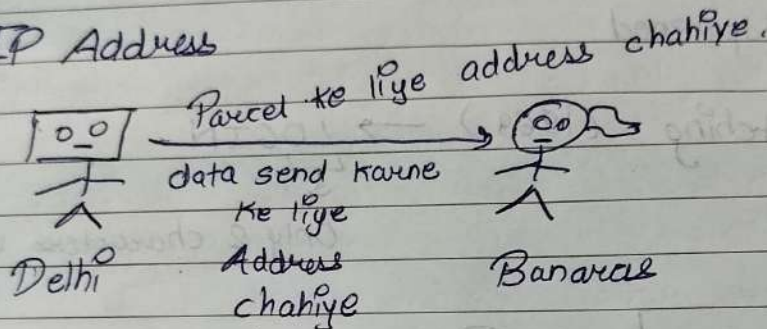 IP Address
Parcel ke liye address chahiye.
data send karne
ke liye
Address
chahiye
Delhi
Banaras